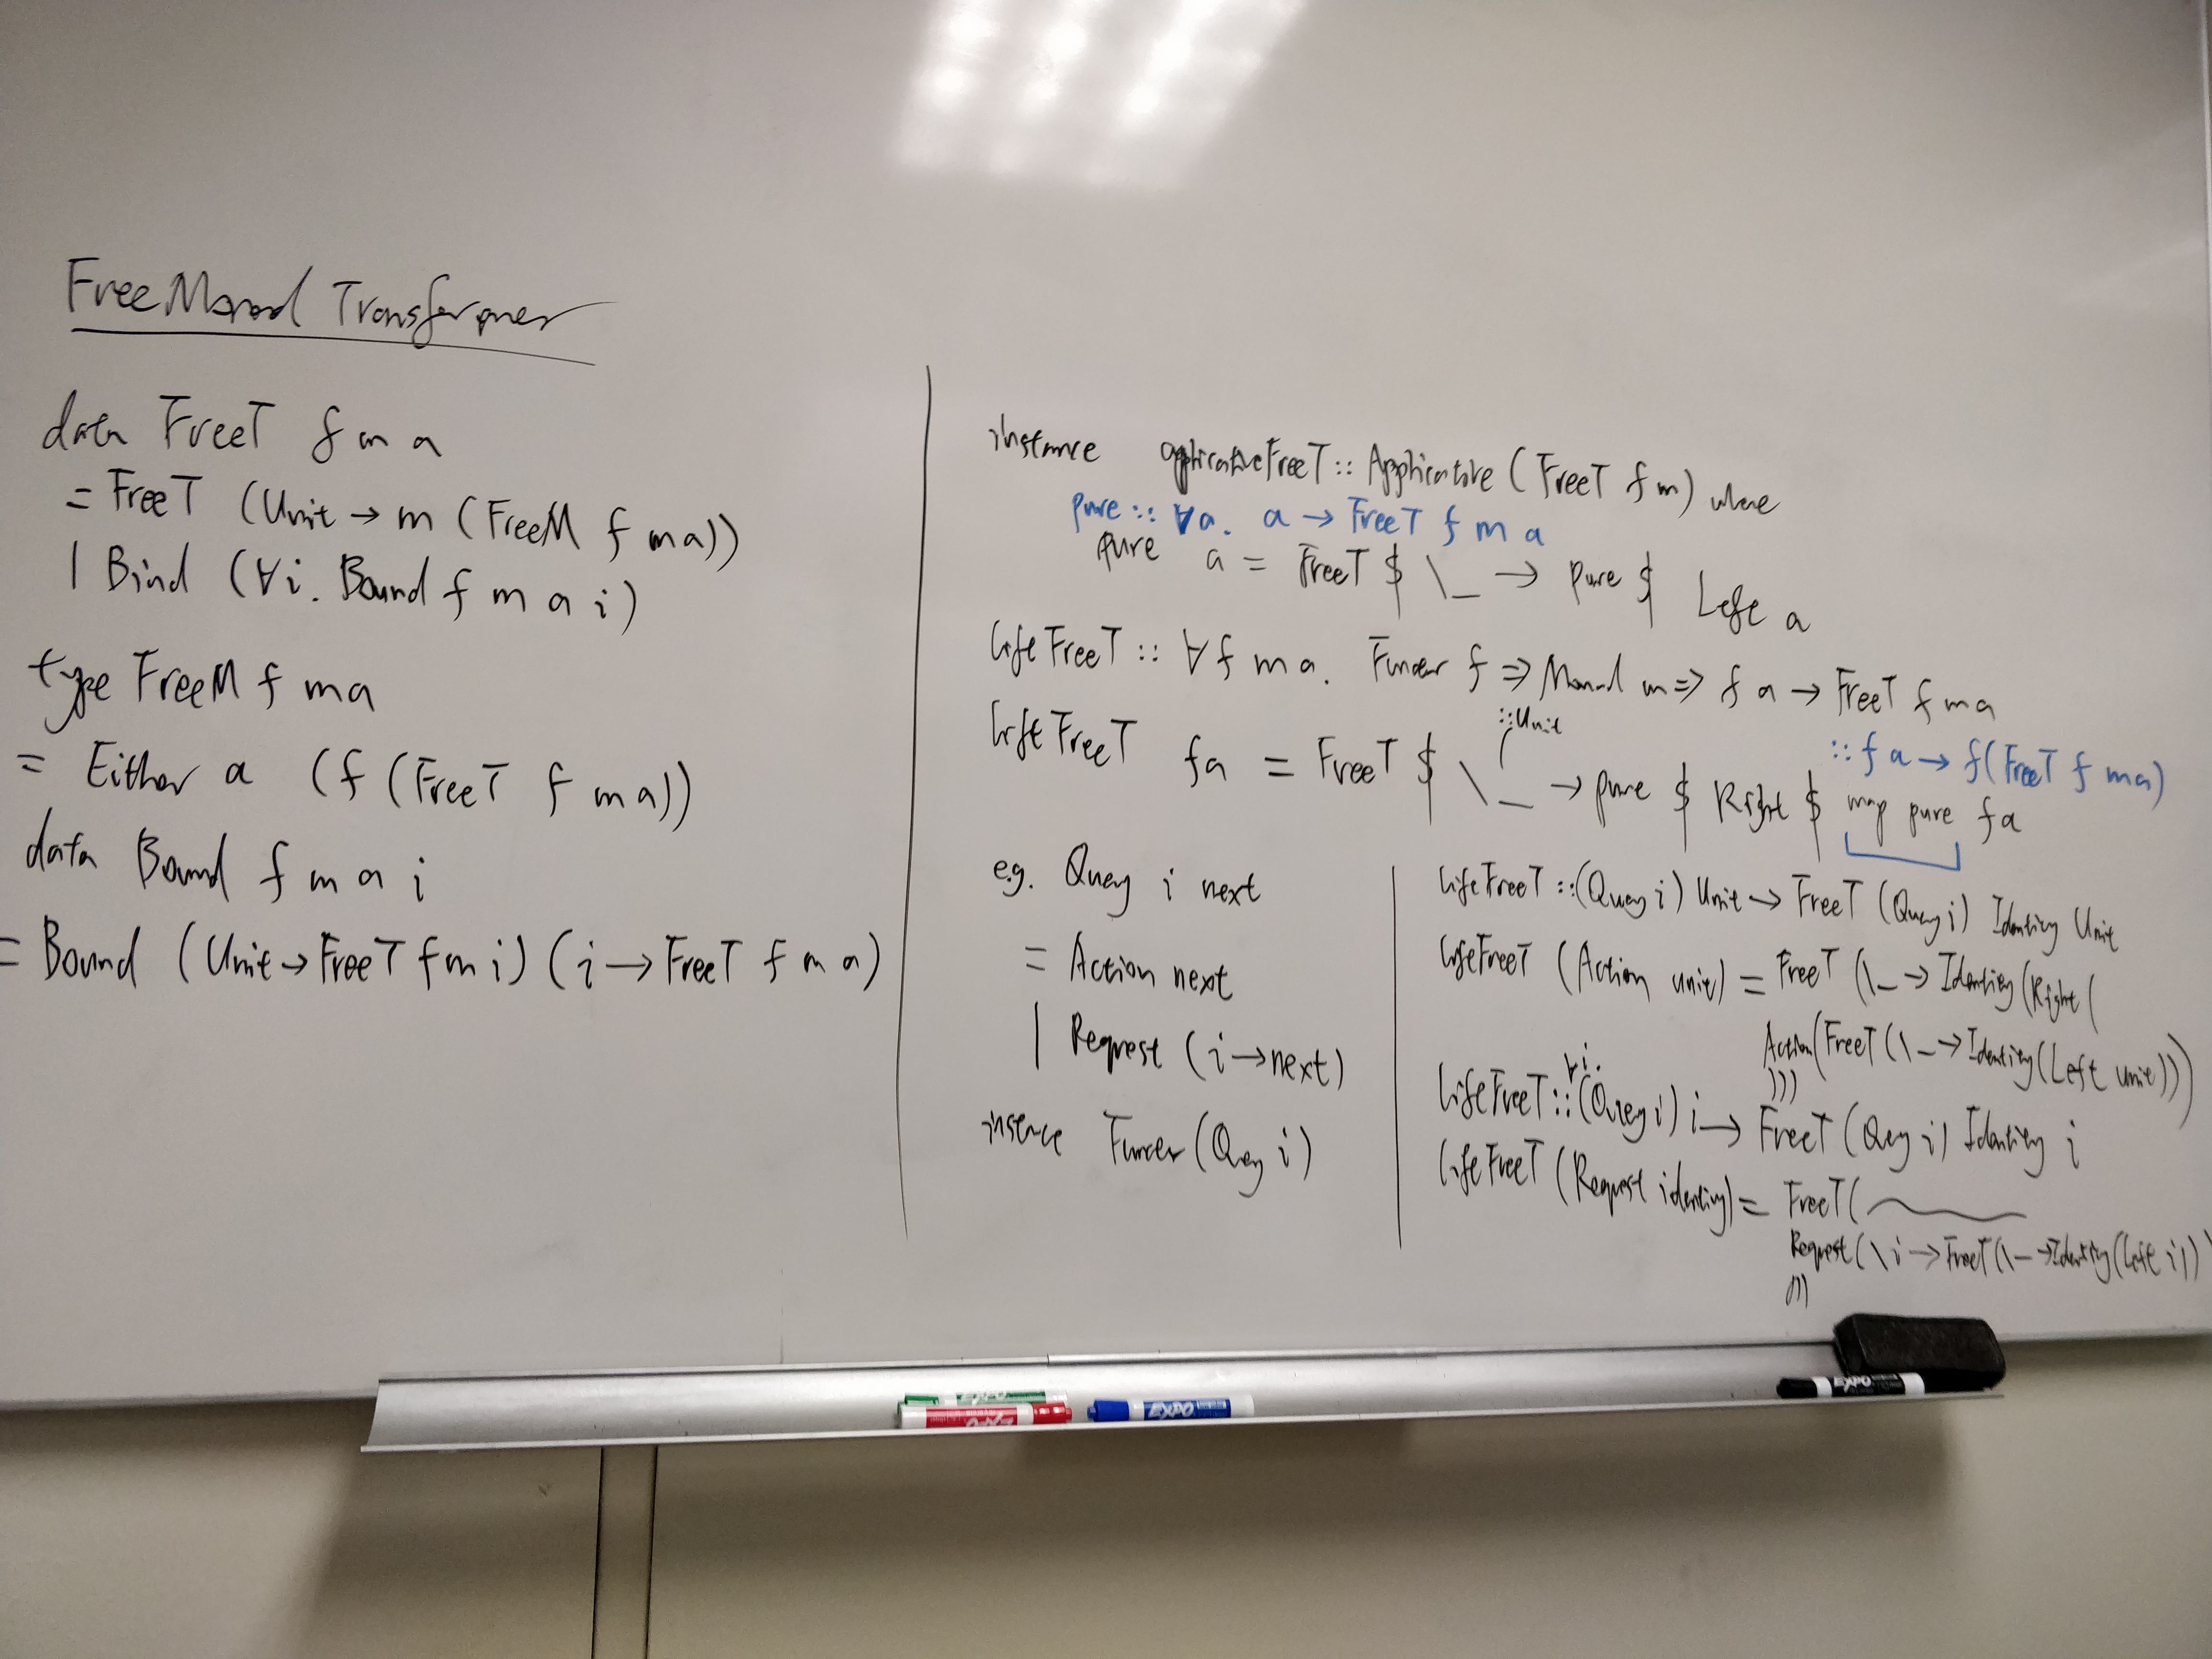 FreeMonad Transformer
data FreeT f m a
= FreeT (Unit → m (FreeM f m a))
| Bind (∀i. Bound f m a i)
type FreeM f m a
= Either a (f (FreeT f m a))
data Bound f m a i
= Bound (Unit → FreeT f m i) (i → FreeT f m a)
instance applicativeFreeT :: Applicative (FreeT f m) where
pure :: ∀a. a → FreeT f m a
pure a = FreeT $ \_ → pure $ Left a
liftFreeT :: ∀ f m a. Functor f => Monad m => f a → FreeT f m a
:: Unit
:: f a → f (FreeT f m a)
liftFreeT fa = FreeT $ \_ → pure $ Right $ map pure fa
e.g. Query i next
= Action next
| Request (i → next)
instance Functor (Query i)
liftFreeT :: (Query i) Unit → FreeT (Query i) Identity Unit
liftFreeT (Action unit) = FreeT (\_ → Identity (Right (
Action (FreeT (\_ → Identity (Left unit)))
)))
∀i.
liftFreeT :: (Query i) i → FreeT (Query i) Identity i
liftFreeT (Request identity) = FreeT (
Request (\i → FreeT (\_ → Identity (Left i))
)))
EXPO
EXPO
EXPO
EXPO